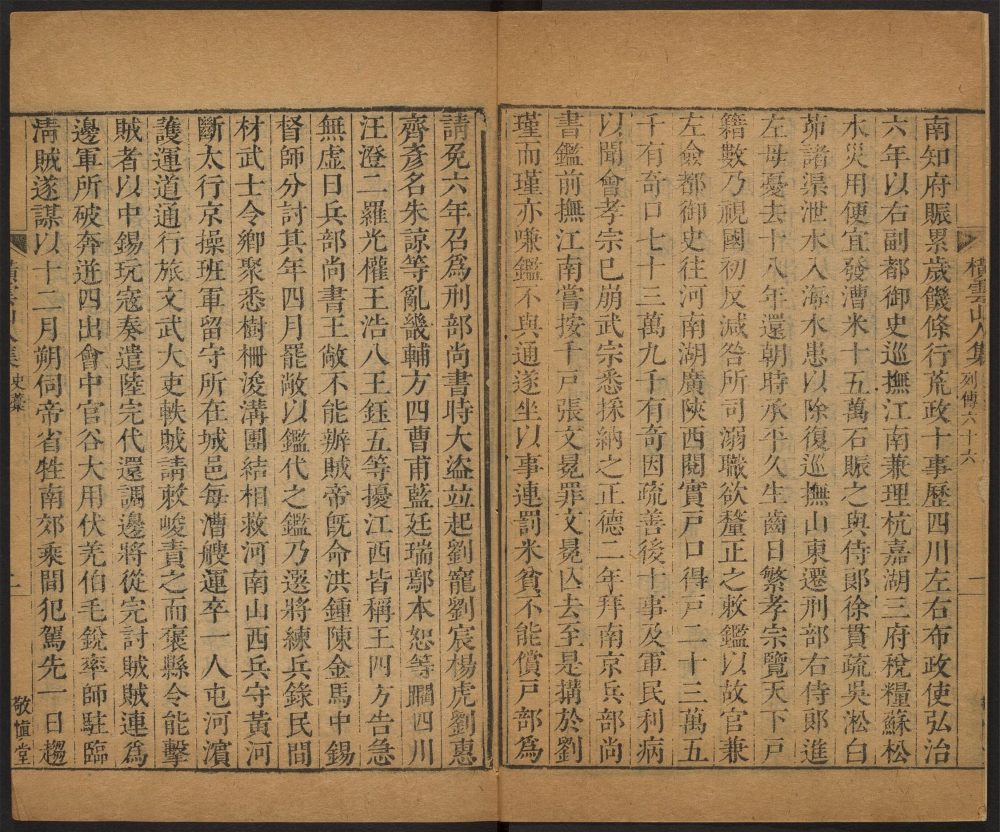 橫雲山人集 列傳六十六 一
南知府賑累歲饑條行荒政十事歷四川左右布政使弘治
六年以右副都御史巡撫江南兼理杭嘉湖三府稅糧蘇松
水災用便宜發漕米十五萬石賑之與侍郎徐貫疏吳淞白
茆諸渠泄水入海水患以除復巡撫山東遷刑部右侍郎進
左母憂去十八年還朝時承平久生齒日繁孝宗覽天下戶
籍數乃視國初反減咎所司溺職欲釐正之敕鑑以故官兼
左僉都御史往河南湖廣陝西閱實戶口得戶二十三萬五
千有奇口七十三萬九千有奇因疏善後十事及軍民利病
以聞會孝宗已崩武宗悉採納之正德二年拜南京兵部尚
書鑑前撫江南嘗按千戶張文冕罪文冕亾去至是搆於劉
瑾而瑾亦嗛鑑不與通遂坐以事連罰米貧不能償戶部爲
請免六年召爲刑部尚書時大盜竝起劉寵劉宸楊虎劉惠
齊彥名朱諒等亂畿輔方四曹甫藍廷瑞鄢本恕等躙四川
汪澄二羅光權王浩八王鈺五等擾江西皆稱王四方告急
無虛日兵部尚書王敞不能辦賊帝既命洪鍾陳金馬中錫
督師分討其年四月罷敞以鑑代之鑑乃選將練兵錄民間
材武士令鄉聚悉樹柵浚溝團結相救河南山西兵守黃河
斷太行京操班軍留守所在城邑每漕艘運卒一人屯河濵
護運道通行旅文武大吏軼賊請敕峻責之而褒縣令能擊
賊者以中錫玩寇奏遣陸完代還調邊將從完討賊賊連爲
邊軍所破奔迸四出會中官谷大用伏羌伯毛銳率師駐臨
淸賊遂謀以十二月朔伺帝省牲南郊乘間犯駕先一日趨
橫雲山人集 史藁 敬愼堂